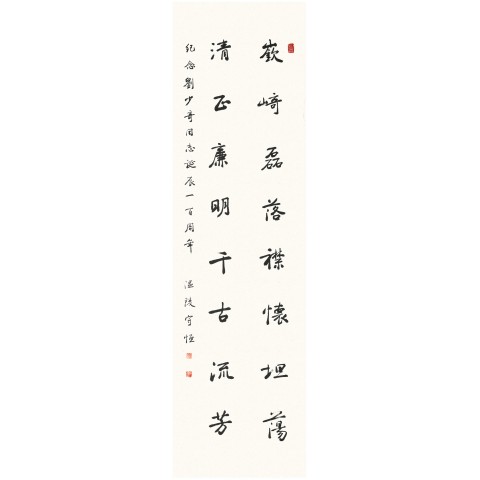 嶔崎磊落襟懷坦蕩
清正廉明千古流芳
纪念劉少奇同志誕辰一百周年
温陵守恒